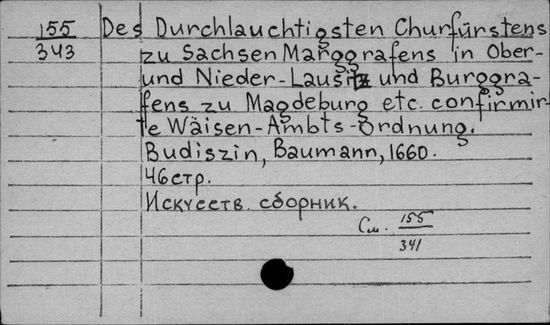 155 Des Durchlauchtigsten Churfürstens
343 zu Sachsen Marggrafens in Ober-
und Nieder-Lausitz und Burggra-
fens zu Magdeburg etc. confirmir-
te Wäisen-Ambts-Ordnung.
Budiszin, Baumann, 1660.
46 стр.
Искусств. сборник.
См. 155
341